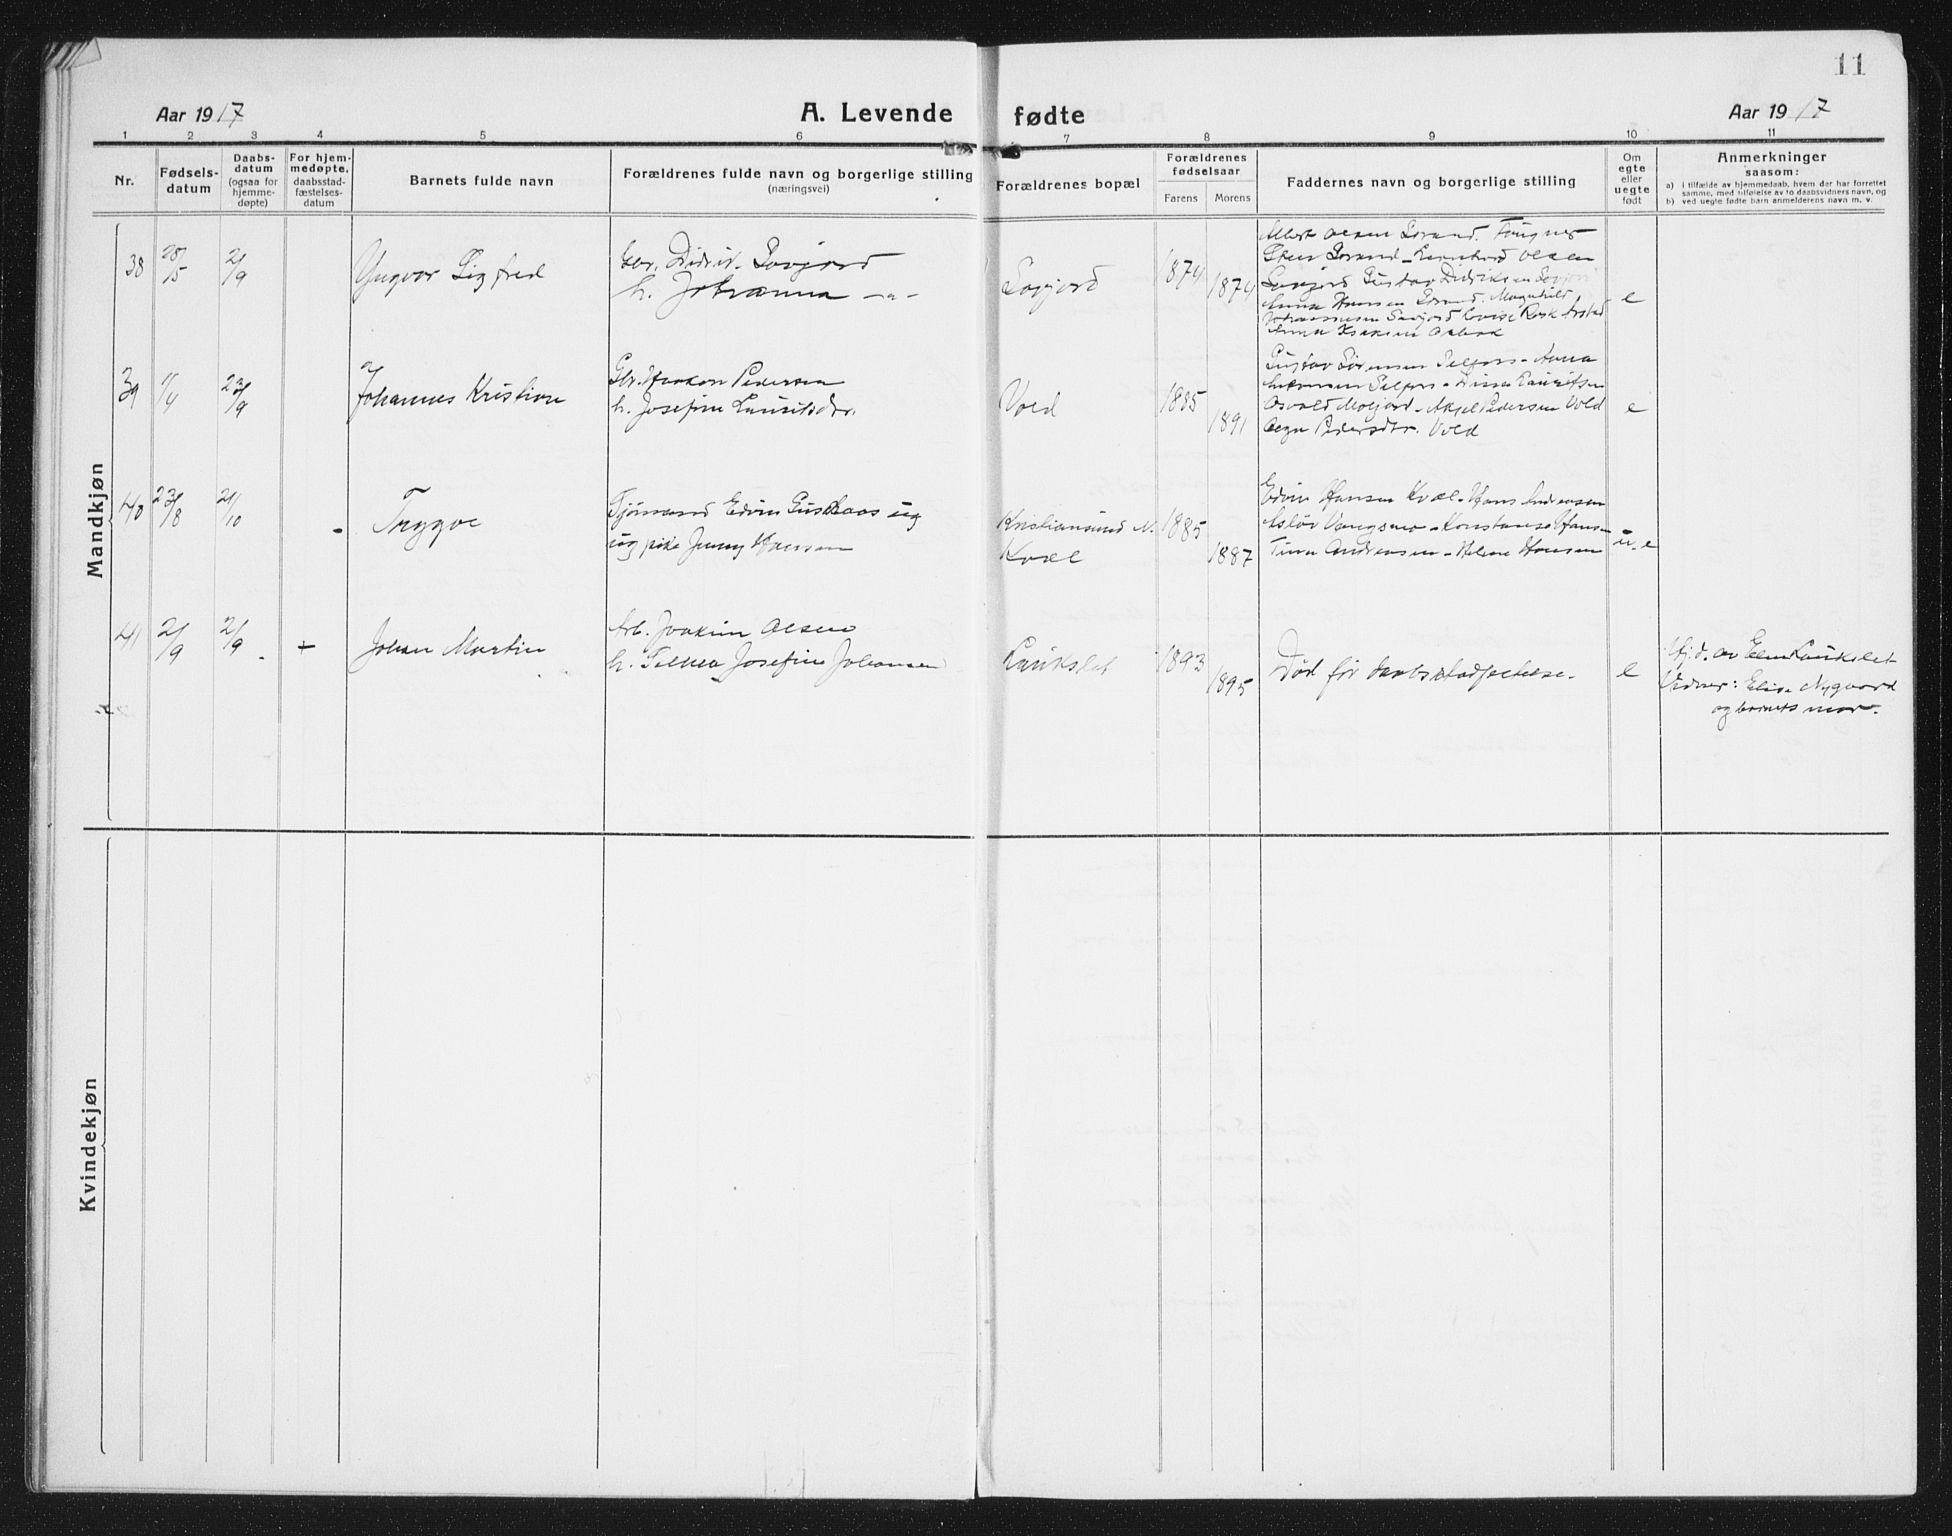 11
Aar 1917
A. Levende fødte
Aar 1917
1 2 3 4 5 6 7 8 9 10 11
Nr.
Fødsels-
datum
Daabs-
datum
(ogsaa for
hjemme-
døpte)
For hjem-
medøpte,
daabsstad-
fæstelses-
datum
Barnets fulde navn
Forældrenes fulde navn og borgerlige stilling
(næringsvei)
Forældrenes bopæl
Forældrenes
fødselsaar
Farens Morens
Faddernes navn og borgerlige stilling
Om
egte
eller
uegte
født
Anmerkninger
saasom:
a) i tilfælde av hjemmedaab, hvem der har forrettet
samme, med tilføielse av to daabsvidners navn, og
b) ved uegte fødte barn anmelderens navn m. v.
Mandkjøn
38
28/5
2/9
Yngvar Sigfred
Gbr. Didrik Sovjord
h. Johanna -"-
Sovjord
1874
1874
Albert Olsen Sørand.
Sørand - Bernhard Olsen
Sovjord Gustav Didriksen
Anna Hansen Sørand. Magnhild
Johannessen Sovjord Lovise
Anna
e
39
1/4
23/9
Johannes Kristian
Gbr. Haakon Pedersen
h. Josefine Lauritsdtr.
Vold
1885
1891
Gustav Sørensen Selfors - Anna
Selfors - Dina Lauritsen
Osvald Moljord - Aksel Pedersen Vold
Pedersdtr. Vold
e
40
23/8
21/10
-
Trygve
Edvin Gustav
ug pike Jenny Hansen
Kristiansund N.
Kvæl
1885
1887
Edvin Hansen Kvæl - Hans Andreasen
Konstanse Hansen
Tina Andreasen - Helene Hansen
u. e
41
2/9
2/9
+
Johan Martin
Arb. Joakim Olsen
h. Selma Josefine Johansen
Laukslet
1893
1895
Død før daabsstadfæstelse.
e
Hj.d. av Laukslet
Vidner: Elise Nygaard
og barnets mor.
Kvindekjøn